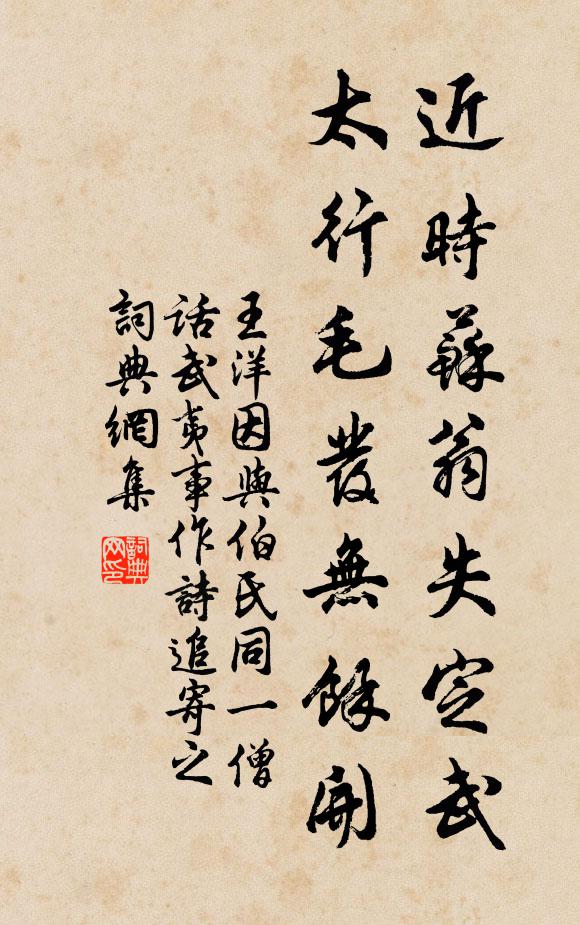 近時蘇翁失定武
太行毛發無餘開
王洋因與伯氏同一僧
話武夷事作詩追寄之
詞典網集
詞典
网印